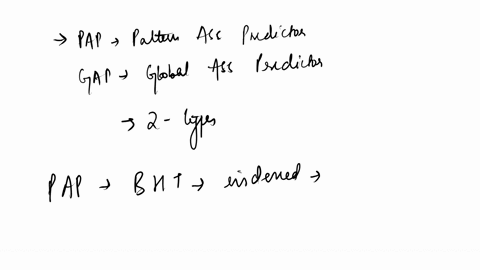 → PAP → Pattern Ass Predictor
GAP → Global Ass Predictor
→ 2 - types
PAP → BHT → indexed →